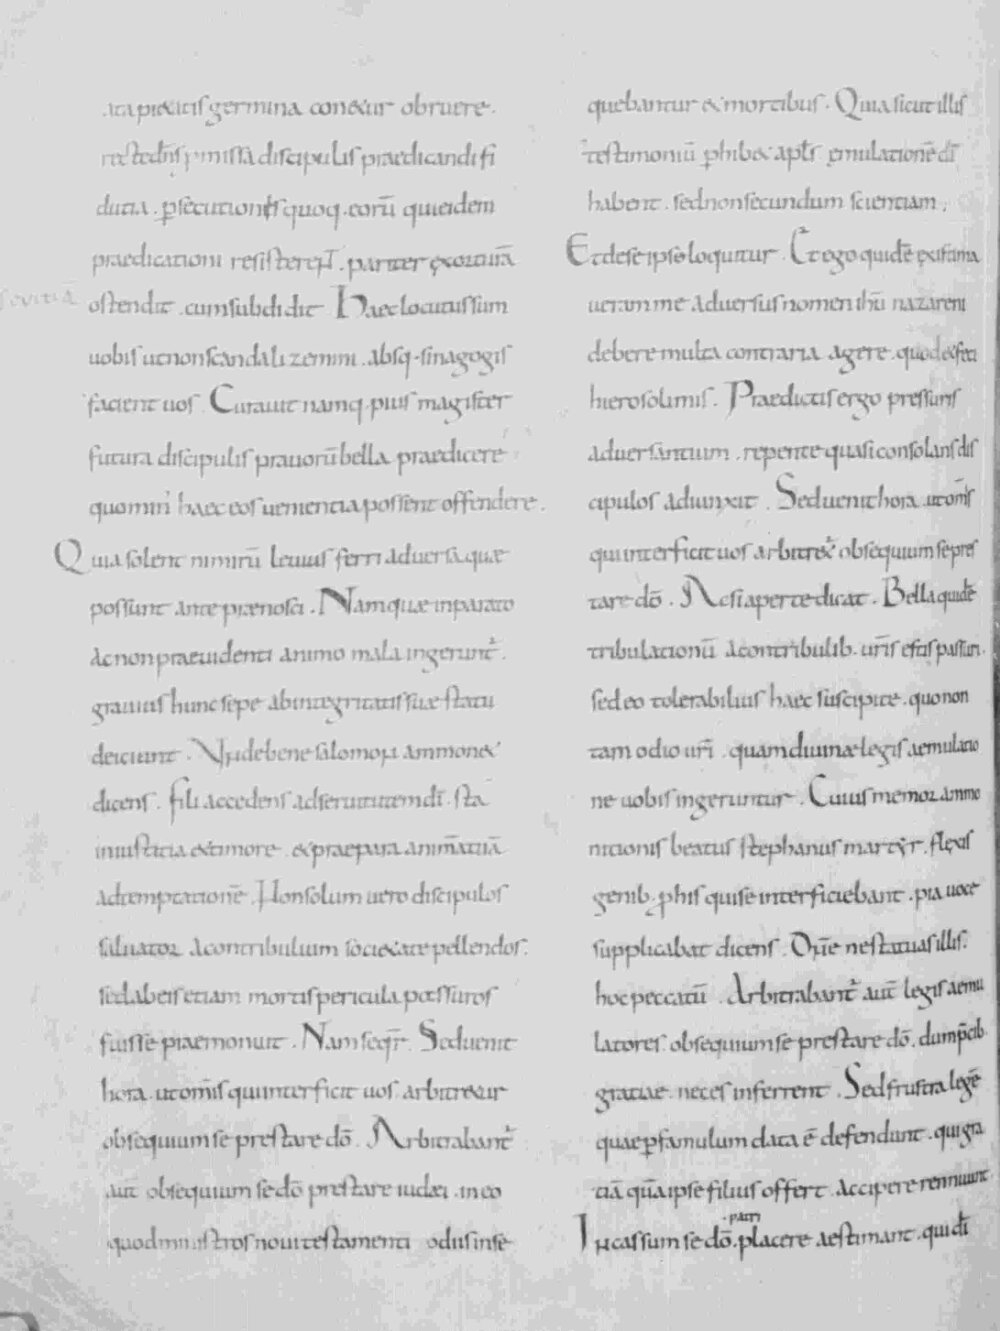 ita pietatis germina conetur obruere.
duria. p̱secutionẽs quoq. eorũ qui eidem
praedicationi resisterent. pariter exorturã
seuitiã
ostendit. cum subdidit. Haec locutus sum
uobis ut non scandalizemini. absq. sinagogis
facient uos. Curauit namq. pius magister
futura discipulis prauorũ bella praedicere
quomin' haec eos uementia possent offendere.
Quia solent nimirũ leuius ferri aduersa. quæ
possunt ante prænosci. Nam quæ inparato
ac non praeuidenti animo mala ingerunt᷑.
grauius hunc sepe ab integritatis suæ statu
deiciunt. Unde bene salomon ammonet
dicens. Fili accedens ad seruitutem dī. sta
in iustitia et timore. et praepara animã tuã
ad temptationẽ. Non solum uero discipulos
saluator a contribulium societate pellendos.
sed ab eis etiam mortis pericula passuros
fuisse praemonuit. Nam seqr̄. Sed uenit
hora. ut om̄s qui interficit uos. arbitretur
obsequium se prestare dō. Arbitrabant᷑
aut̄ obsequium se dō prestare iudæi. in eo
quod ministros noui testamenti odiis inse
quebantur et mortibus. Quia sicut illis
testimoniũ p̱hibet apłs ęmulationẽ dī
habent. sed non secundum scientiam.
Et de se ipso loquitur. Et ego quidẽ existima
ueram me aduersus nomen ihū nazareni
debere multa contraria agere. quod et feci
hierosolimis. Praedictis ergo pressuris
aduersantium. repente quasi consolans dis
cipulos adiunxit. Sed uenit hora. ut om̄s
qui interficit uos arbitret᷑ obsequium se pres
tare dō. Ac si aperte dicat. Bella quidẽ
tribulationũ a contribulib. ur̄is estis passuri.
sed eo tolerabilius haec suscipite. quo non
tam odio ur̄i. quam diuinæ legis aemulatio
ne uobis ingeruntur. Cuius memor ammo
nicionis beatus stephanus martyr. flexis
genib. p̱ his qui se interficiebant. pia uoce
supplicabat dicens. Dñe ne statuas illis.
hoc peccatũ. Arbitrabant᷑ aut̄ legis aemu
latores. obsequium se prestare dō. dum p̄cib
gratiae neces inferrent. Sed frustra legẽ
quae p̱ famulum data ē defendunt. qui gra
tiã quã ipse filius offert. accipere rennuunt
patri
Incassum se dō. placere aestimant. qui dī